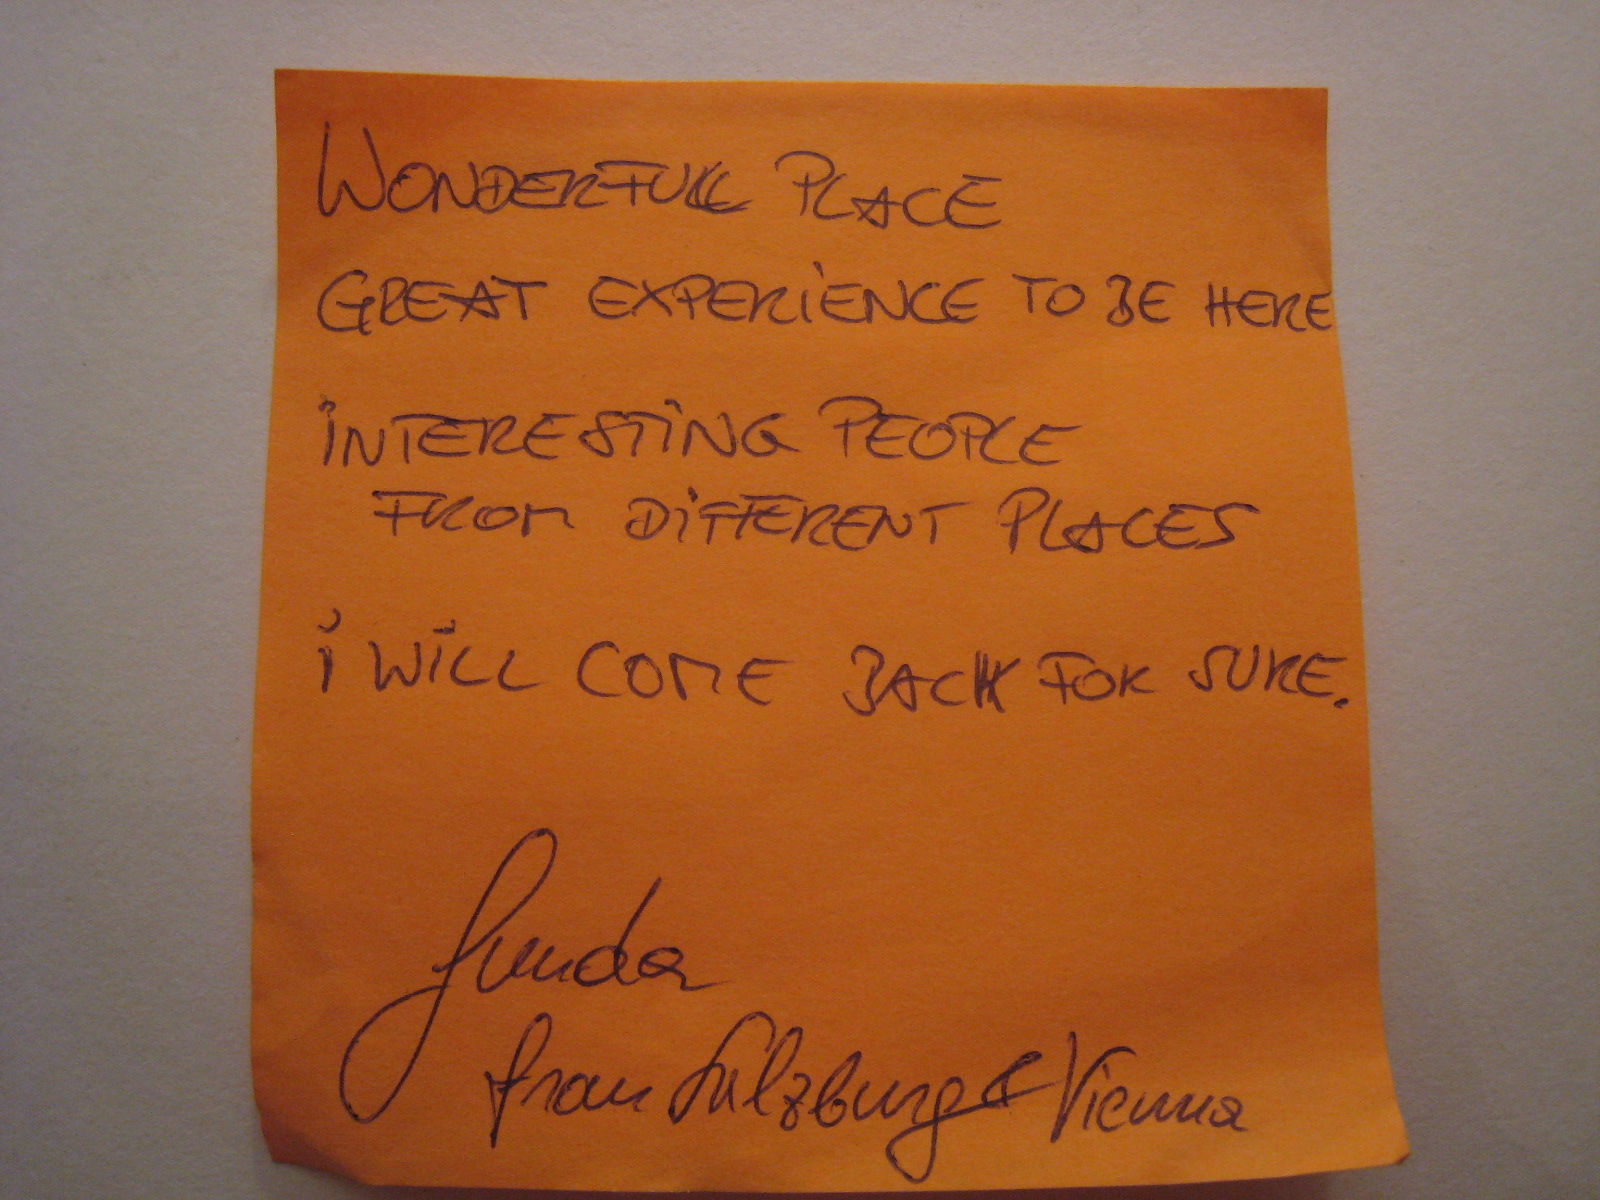 WONDERFULL PLACE
GREAT EXPERIENCE TO BE HERE
INTERESTING PEOPLE
FROM DIFFERENT PLACES
i WILL COME BACK FOR SURE.
from Salzburg & Vienna